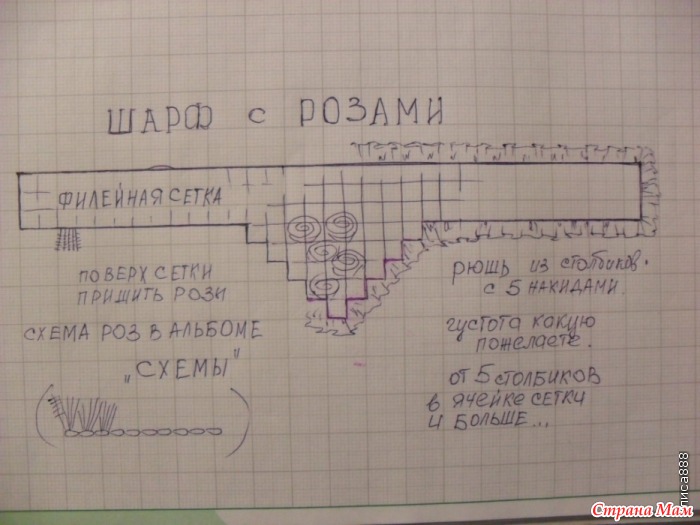 ШАРФ С РОЗАМИ
ФИЛЕЙНАЯ СЕТКА
ПОВЕРХ СЕТКИ
ПРИШИТЬ РОЗЫ
СХЕМА РОЗ В АЛЬБОМЕ
„СХЕМЫ"
РЮШЬ ИЗ СТОЛБИКОВ.
С 5 НАКИДАМИ.
ГУСТОТА КАКУЮ
ПОЖЕЛАЕТЕ.
ОТ 5 СТОЛБИКОВ
В ЯЧЕЙКЕ СЕТКИ
И БОЛЬШЕ...
Страна Мам